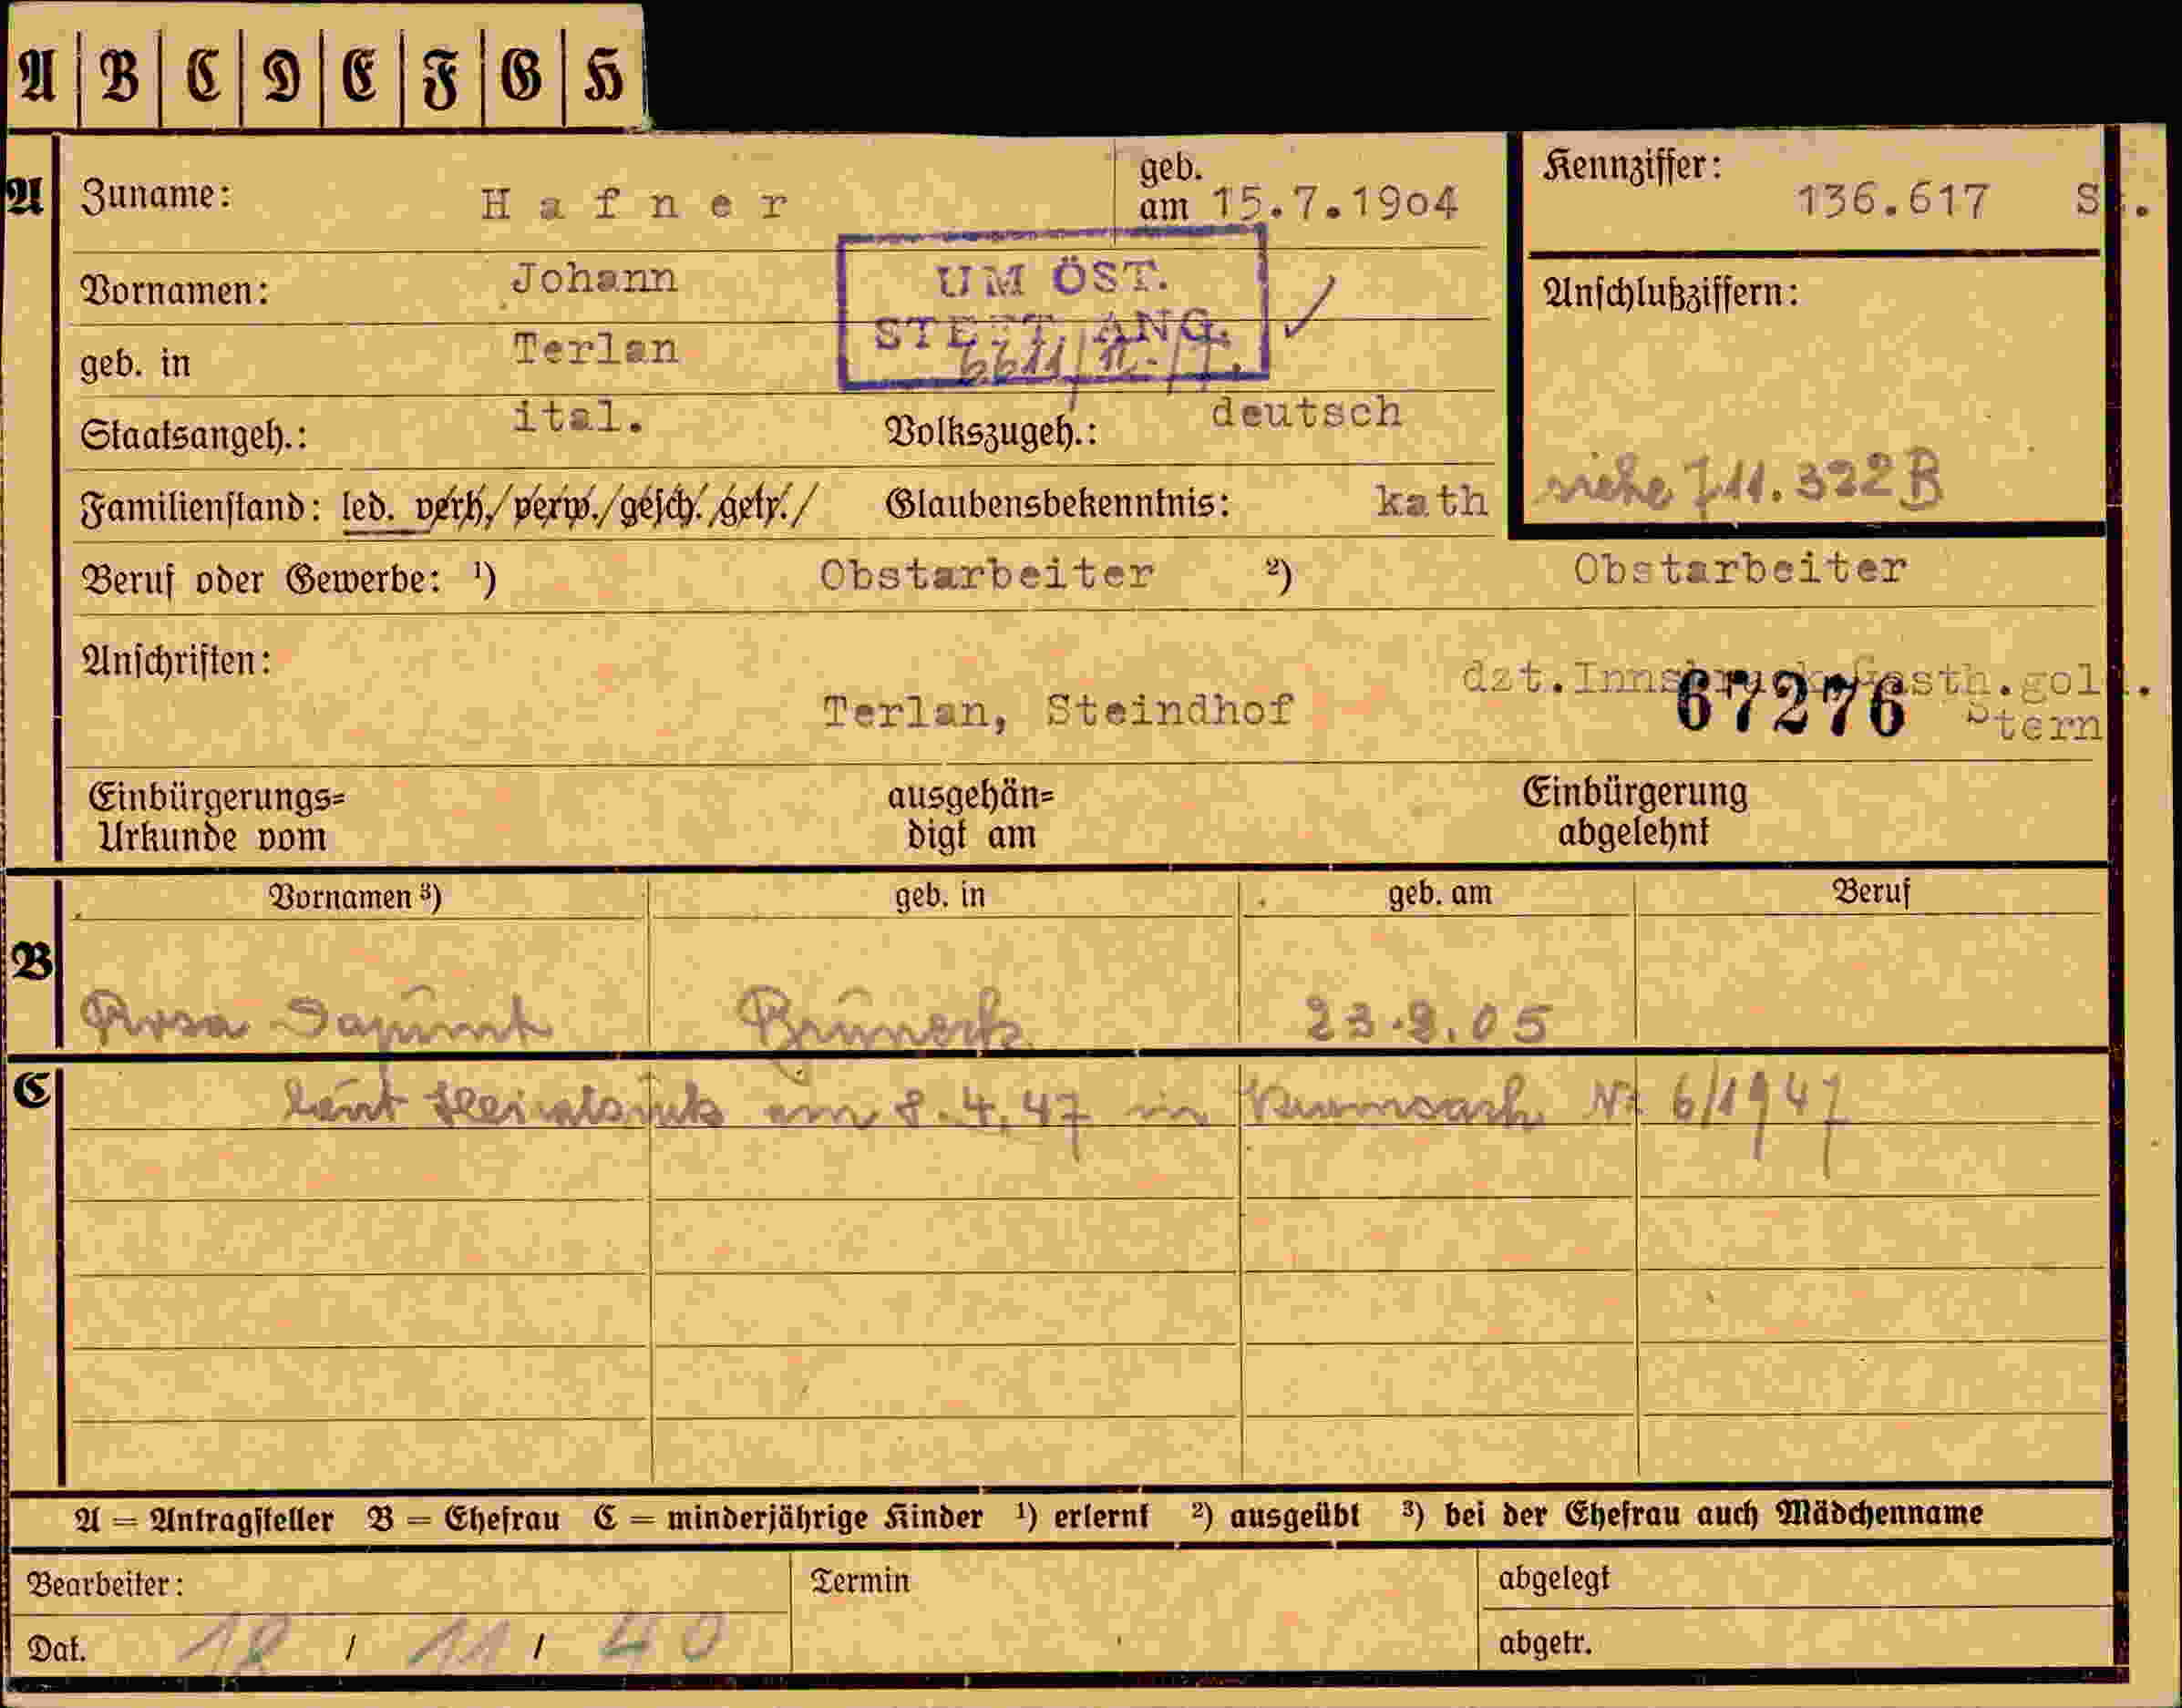 A B C D E F G H
A Zuname: Hafner geb. am 15.7.1904 Kennziffer: 136.617
Vornamen: Johann UM ÖST. Anschlußziffern:
geb. in Terlan ANG.
Staatsangeh.: ital. Volkszugeh.: deutsch
Familienstand: led. verh./verw./gesch./getr./ Glaubensbekenntnis: kath siehe 711.322 B
Beruf oder Gewerbe: ¹) Obstarbeiter ²) Obstarbeiter
Anschriften: dzt.Innsbruck Gasth.gold.
Terlan, Steindhof 67276 Stern
Einbürgerungs= ausgehän= Einbürgerung
Urkunde vom digt am abgelehnt
Vornamen ³) geb. in geb. am Beruf
B
Rosa Bruneck
C
laut am 8.4.47 in Kramsach Nr 6/1947
A = Antragsteller B = Ehefrau C = minderjährige Kinder ¹) erlernt ²) ausgeübt ³) bei der Ehefrau auch Mädchenname
Bearbeiter: Termin abgelegt
Dat. 18 / 11 / 40 abgetr.